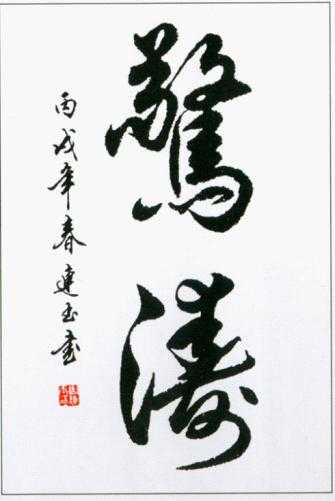 驚濤
丙戌年春連玉書